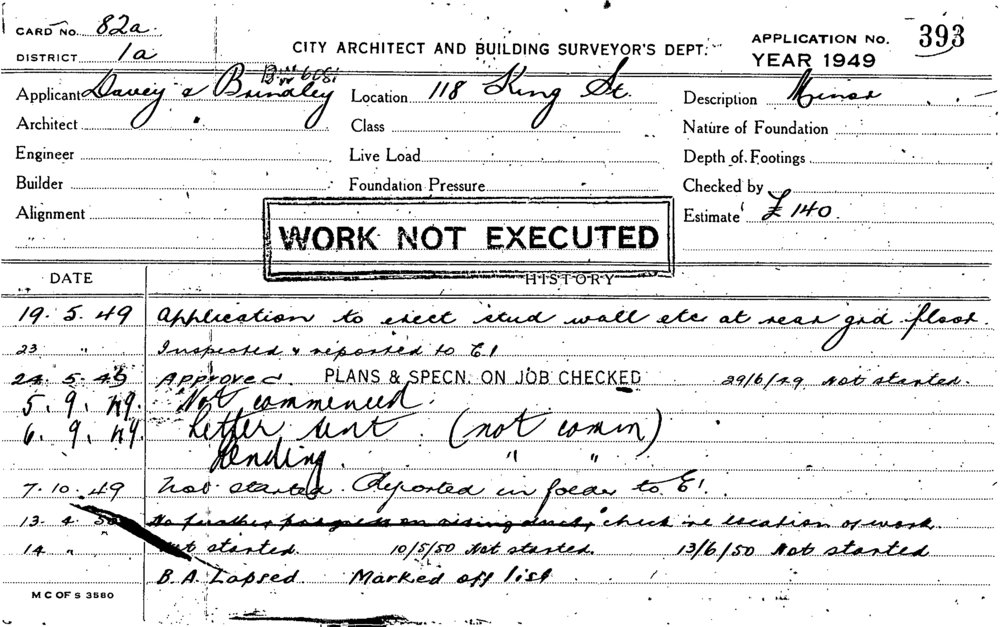 CARD No. 82a
DISTRICT 1a
CITY ARCHITECT AND BUILDING SURVEYOR'S DEPT.
APPLICATION No. 393
YEAR 1949
Applicant Davey & Brindley
Location 118 King St.
Description Minor
Architect
Class
Nature of Foundation
Engineer
Live Load
Depth of Footings
Builder
Foundation Pressure
Checked by
Alignment
Estimate £140.
WORK NOT EXECUTED
DATE HISTORY
19. 5. 49 Application to erect stud wall etc at rear grd floor.
23 " Inspected & reported to E1
24. 5. 49 Approved. PLANS & SPECN. ON JOB CHECKED 29/6/49 Not started.
5. 9. 49. Not commenced.
6. 9. 49. Letter sent (not comm)
Pending. " "
7. 10. 49 Not started. Reported in folder to E1.
13. 4. 50 No further progress on check re location of work.
14 " Not started. 10/5/50 Not started. 13/6/50 Not started
B.A. Lapsed. Marked off list
M C OF S 3580